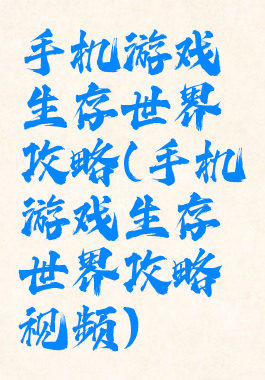 手机游戏
生存世界
攻略(手机
游戏生存
世界攻略
视频)